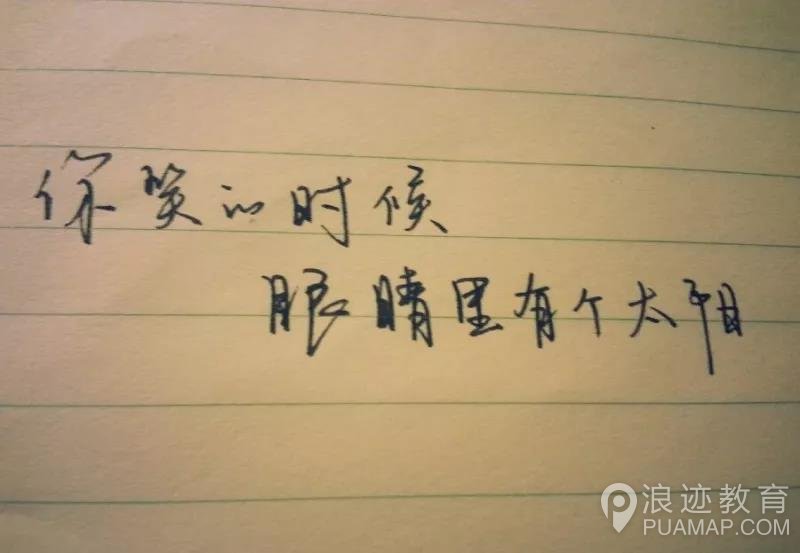 你笑的时候
眼睛里有个太阳
浪迹教育
PUAMAP.COM